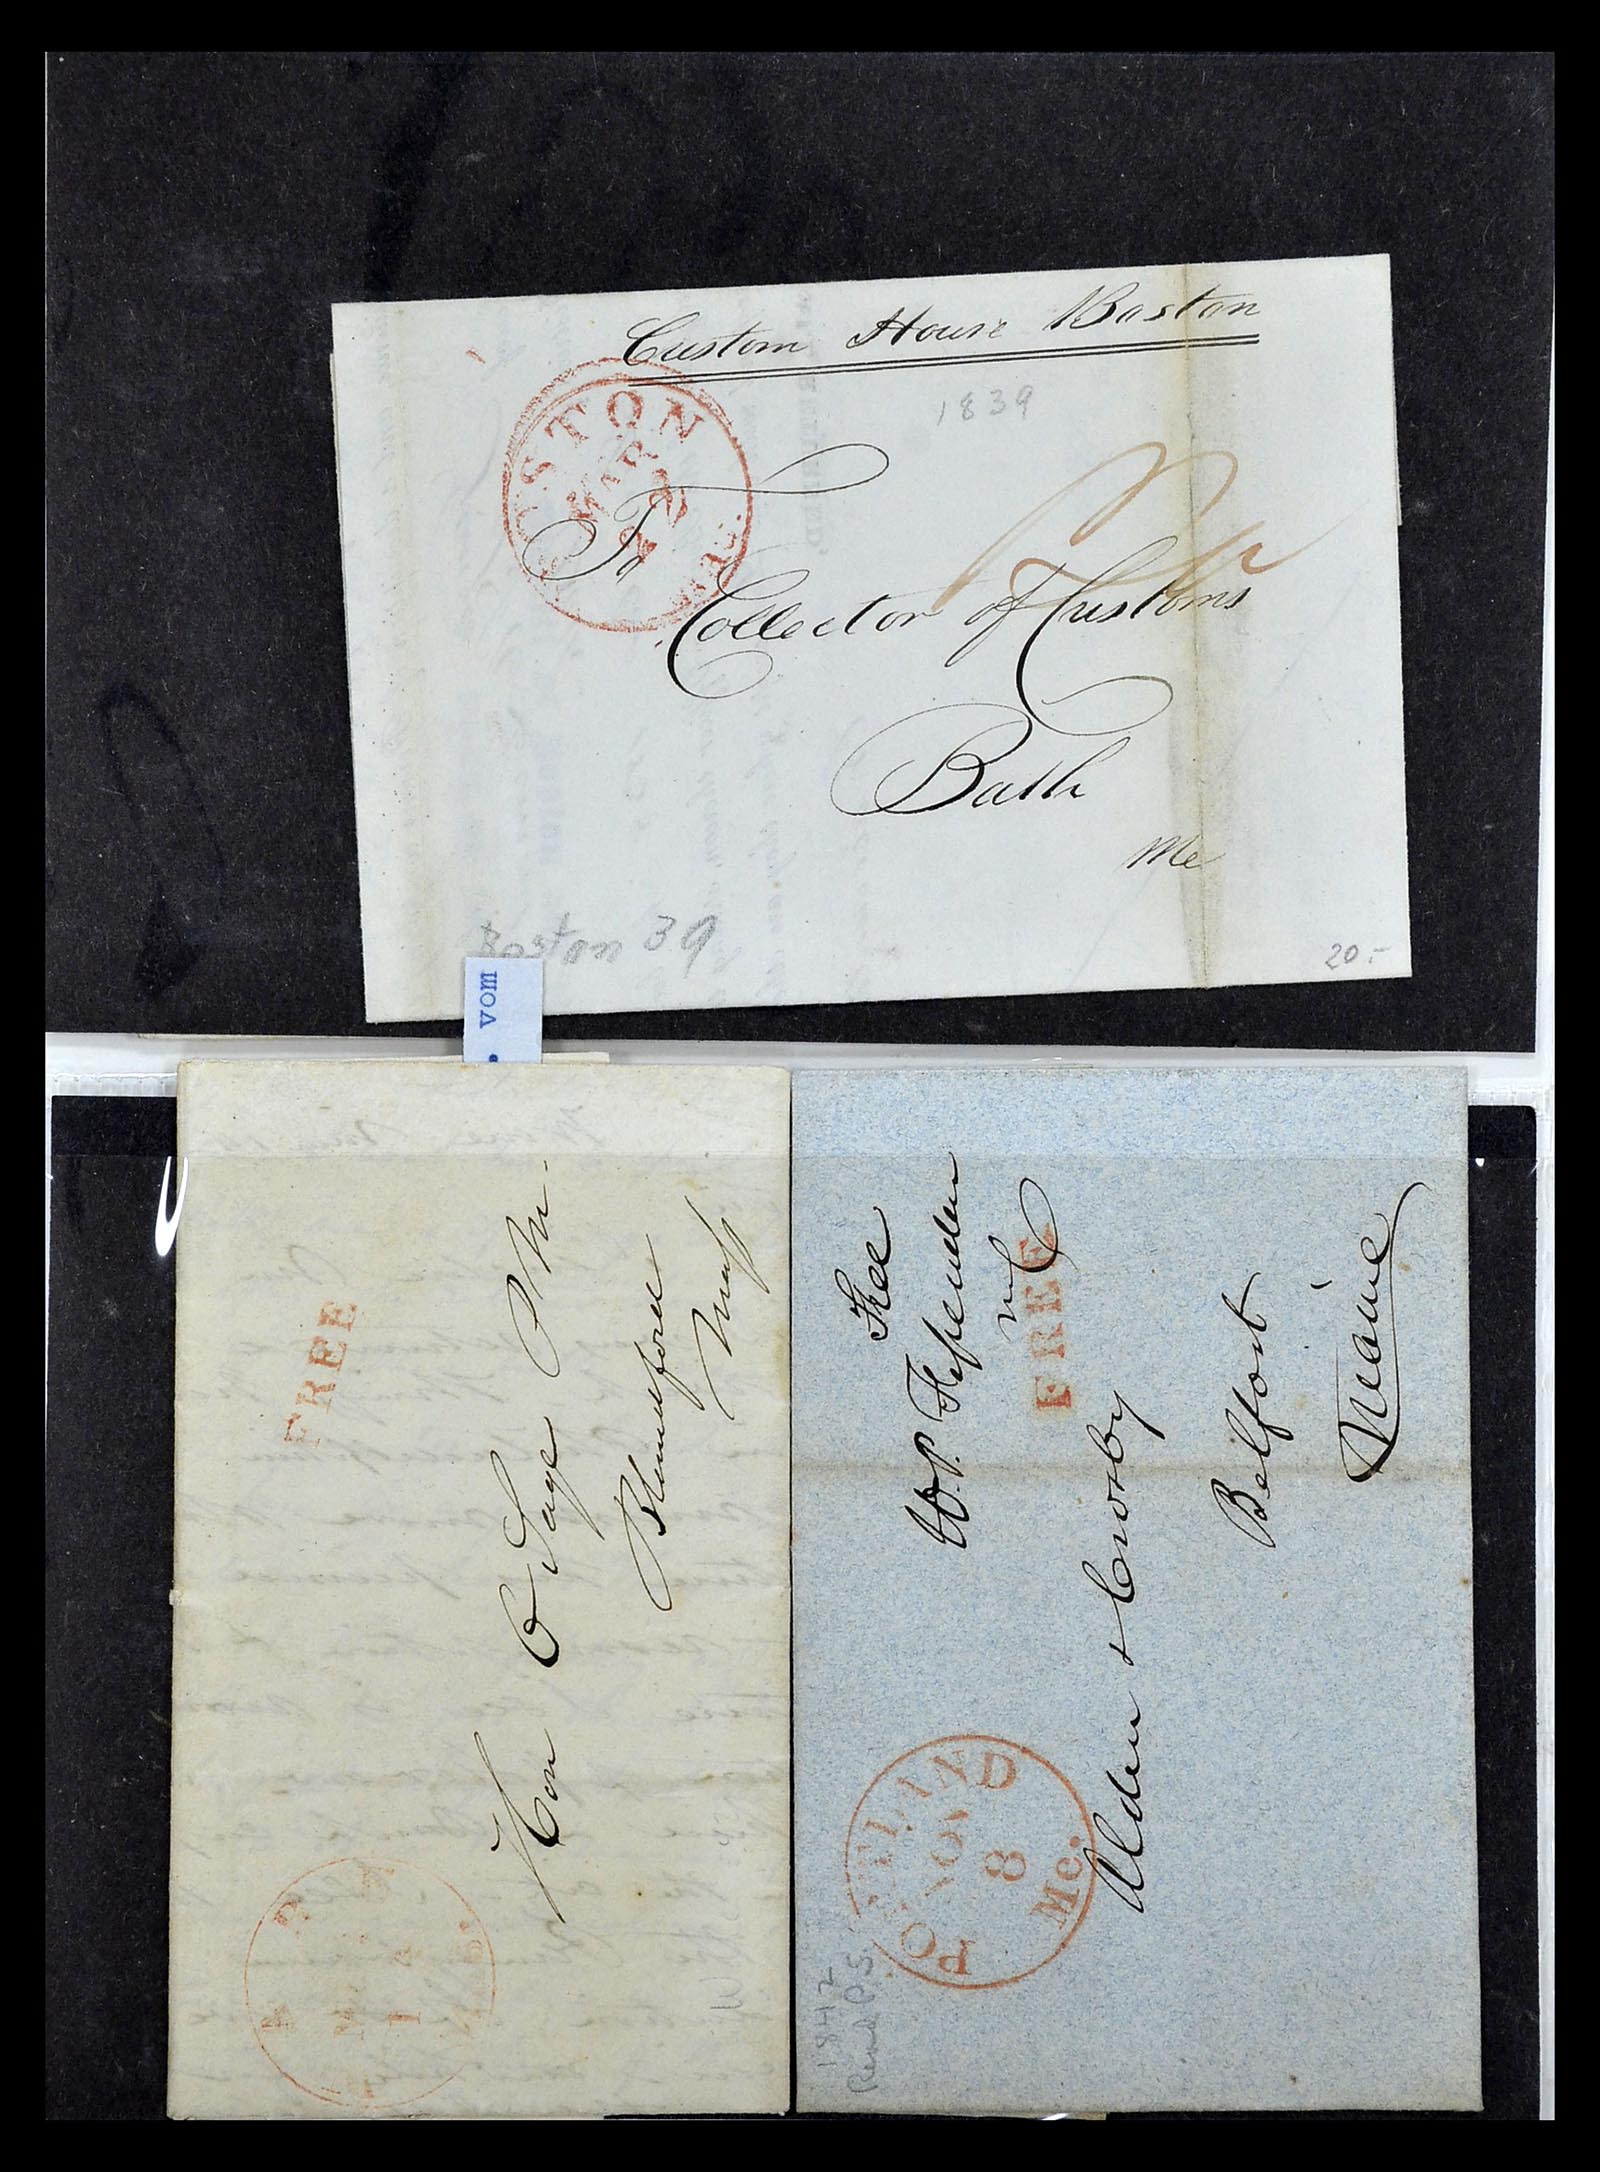 Custom House Boston
1839
BOSTON
MAR
22
MAS.
To
Collector of Customs
Bath
Me
Boston 39
20.-
vom
FREE
Hon O Sage PM
Blandford
Mass
MAY
1
Free
W.P. Fessenden
MC
FREE
Alden & Crosby
Belfast
Maine
PORTLAND
NOV
8
Me.
1842